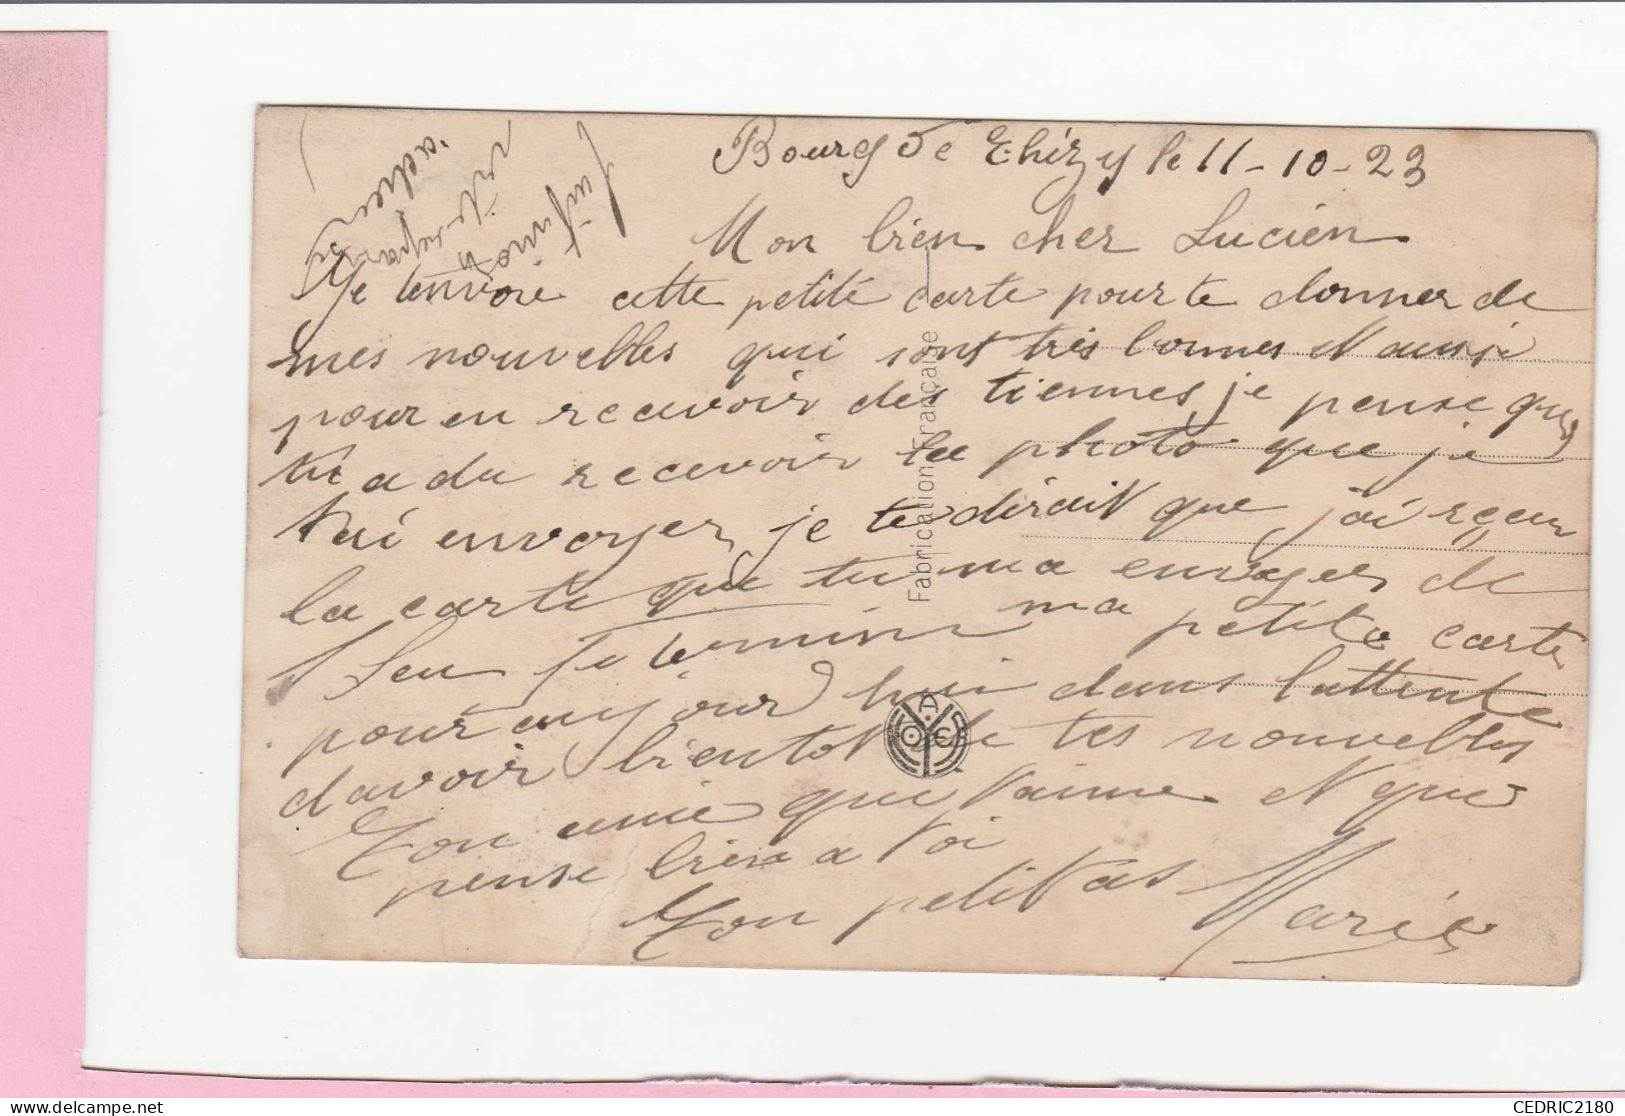 Bourg de Thizy le 11-10-23
Mon bien cher Lucien
Je tenvoie cette petite carte pour te donner de
mes nouvelles qui sont très bonnes et aussi
pour en recevoir des tiennes je pense que
tu a du recevoir la photo que je
tai envoyer je te dirait que j'ai reçu
la carte que tu ma envoyer de
je termine ma petite carte
pour aujourd hui dans lattente
davoir bientot de tes nouvelles
Ton amie qui t'aime et qui
pense bien a toi
Ton petit as Marie
adieu
Fabrication Française
CEDRIC2180